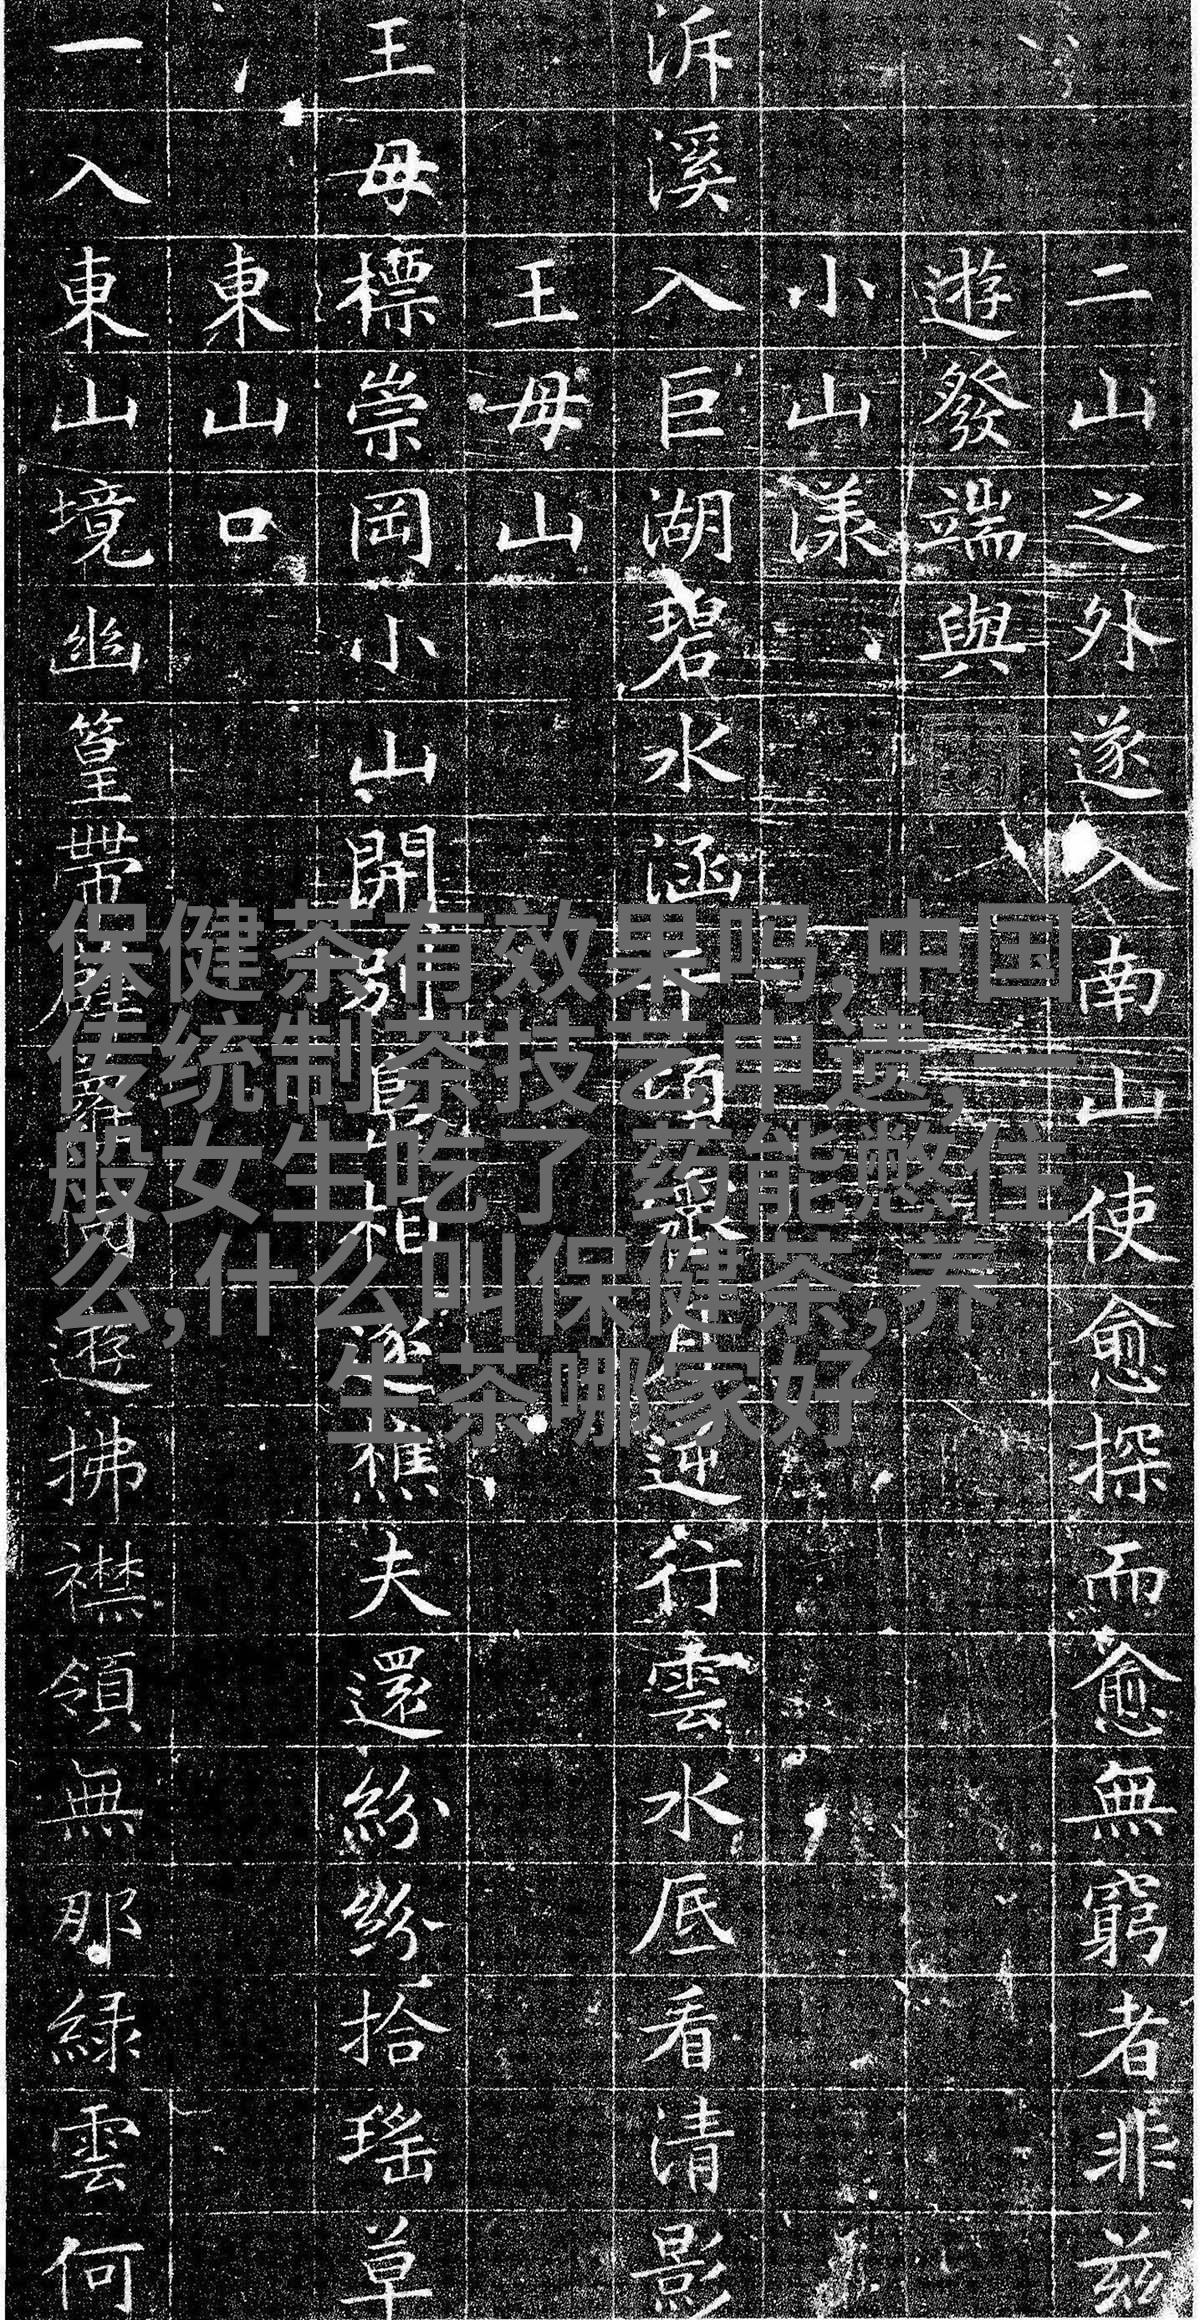 二山之外遂入南山使愈探而愈無窮者非茲
遊發端與
小山漾
泝溪入巨湖碧水涵千頃逆行雲水底看清影
王母山
王母標崇岡小山開相逐樵夫還紛紛拾瑤草
東山口
一入東山境幽篁帶遊拂襟領無那綠雲何
保健茶有效果吗,中国
传统制茶技艺申遗,一
般女生吃了 药能憋住
么,什么叫保健茶,养
生茶哪家好